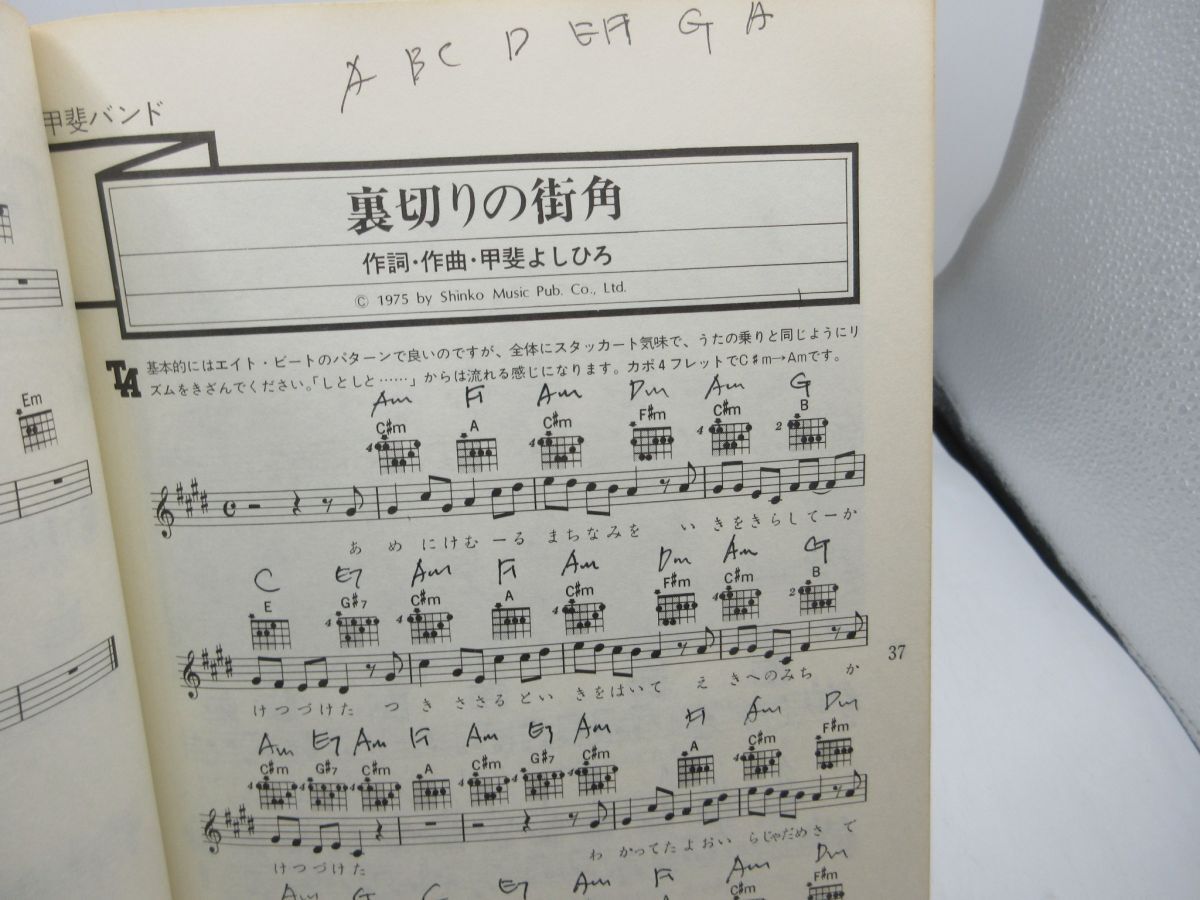 A B C D E F G A
甲斐バンド
裏切りの街角
作詞・作曲・甲斐よしひろ
© 1975 by Shinko Music Pub. Co., Ltd.
TA 基本的にはエイト・ビートのパターンで良いのですが、全体にスタッカート気味で、うたの乗りと同じようにリ
ズムをきざんでください。「しとしと……」からは流れる感じになります。カポ4フレットでC♯m→Amです。
Em
Am F Am Dm Am G
C♯m A C♯m F♯m C♯m B
4 4 4 2
あ め にけむーる まちなみを い きをきらしてーか
C E7 Am F Am Dm Am G
E G♯7 C♯m A C♯m F♯m C♯m B
4 4 4 4 2
けつづけた つ き ささる とい きをはいて え きへのみち か
37
Am E7 Am F Am E7 Am F Am Dm
C♯m G♯7 C♯m A C♯m G♯7 C♯m A C♯m F♯m
4 4 4 4 4 4 4
けつづけた わ かってたよおい らじゃだめさ て
Am G C E7 Am F Am Dm
C♯m F♯m